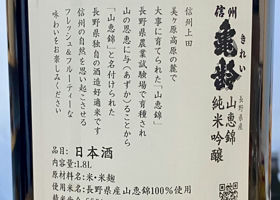 信州
亀齢
きれい
長野県産
山恵錦
純米吟醸
信州上田
美ヶ原高原の麓で
大事に育てられた「山恵錦」
長野県農業試験場で育種され
山の恩恵に与(あずか)ることから
「山恵錦」と名付けられた
長野県独自の酒造好適米です
信州の自然を思い起こさせる
フレッシュ&フルーティーな
味わいをお楽しみください
品目:日本酒
内容量:1.8L
原材料名:米・米麹
使用米名:長野県産山恵錦100%使用